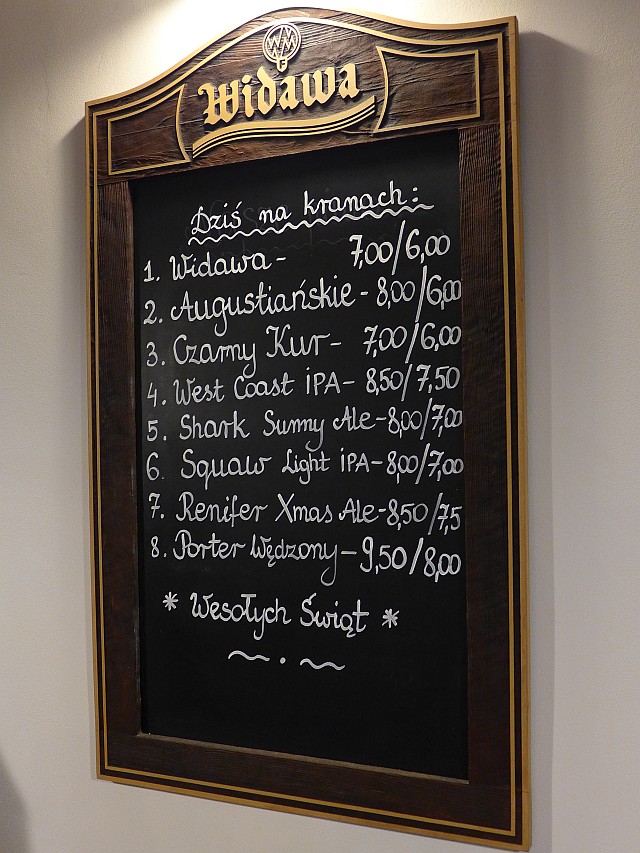 WM
F
Widawa
Dziś na kranach:
1. Widawa - 7,00/6,00
2. Augustiańskie - 8,00/6,00
3. Czarny Kur - 7,00/6,00
4. West Coast IPA - 8,50/7,50
5. Shark Sunny Ale - 8,00/7,00
6. Squaw Light IPA - 8,00/7,00
7. Renifer Xmas Ale - 8,50/7,5
8. Porter Wędzony - 9,50/8,00
* Wesołych Świąt *